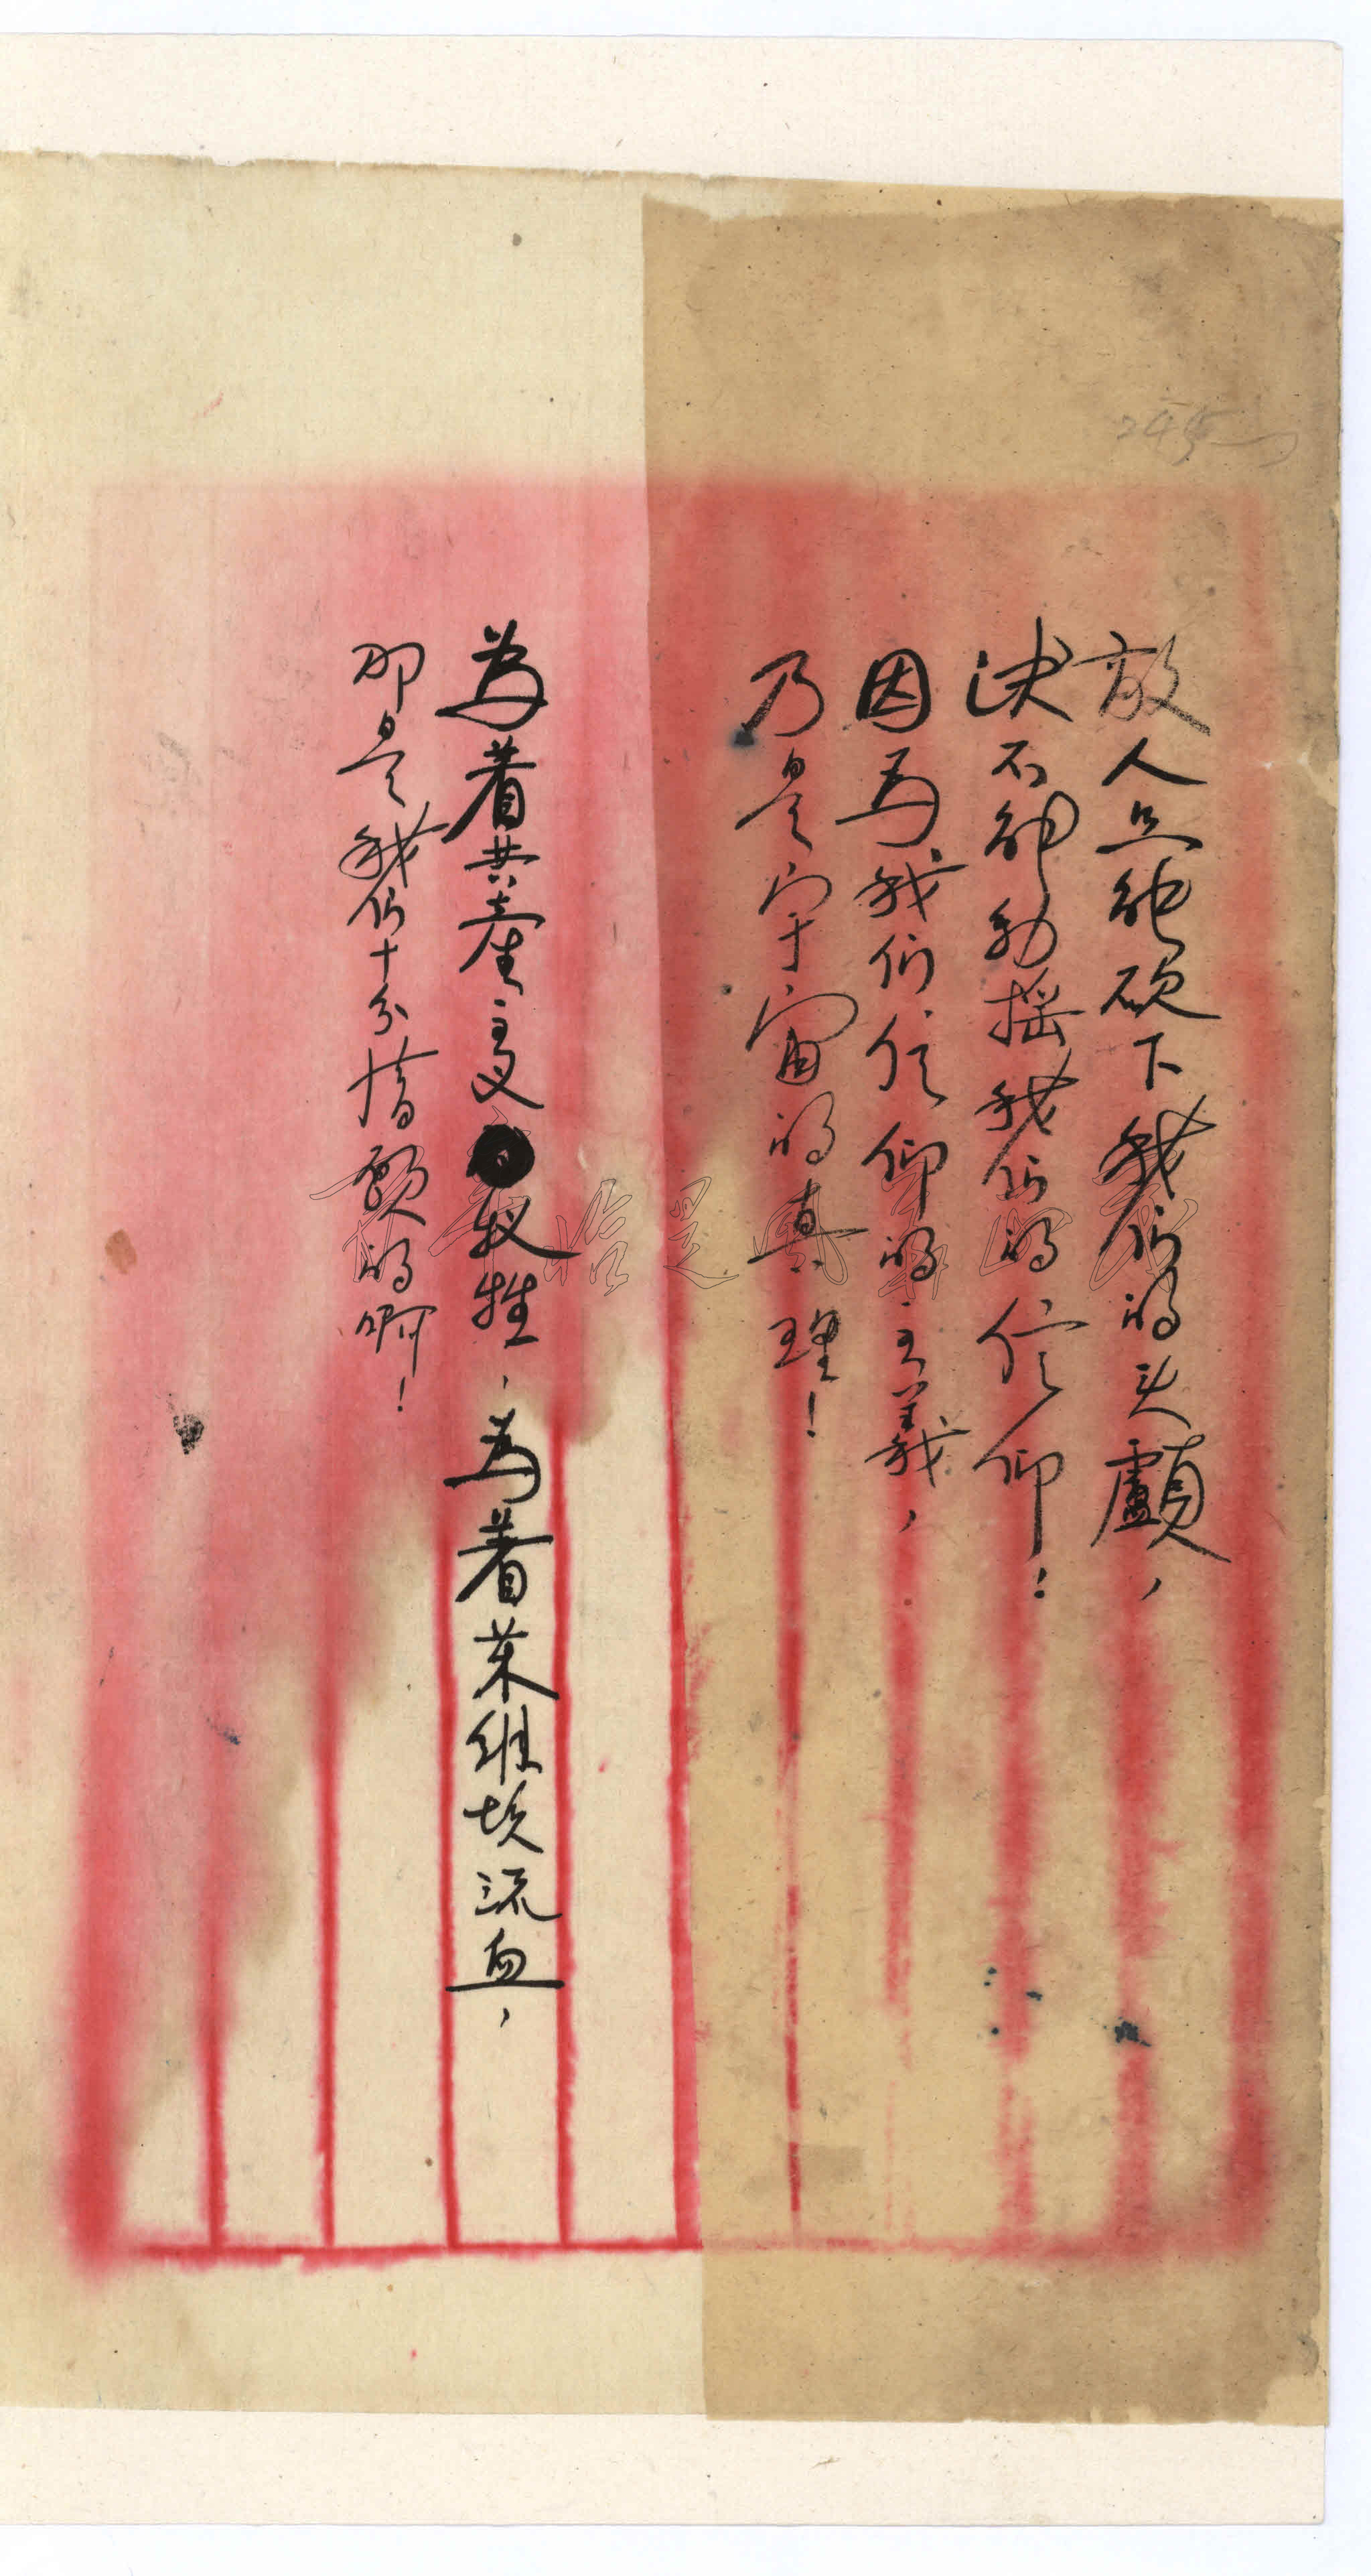 敌人只能砍下我们的头顱，
决不能动摇我们的信仰！
因为我们信仰的主義，
乃是宇宙的真理！
為着共產主义牺牲，為着苏维埃流血，
那是我们十分情願的啊！
245